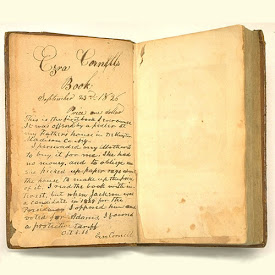 Ezra Cornell's
Book
September 24th 1826
Price one dollar
This is the first book I ever owned
It was offered by a pedlar at
my Father's house in DeRuyter
Madison County.
I persuaded my Mother
to buy it for me. She had
no money, and to oblige me
she picked up paper rags about
the house to make up the price
of it. I read the book with in-
terest, but when Jackson was
a candidate in 1828 for the
Presidency I opposed him and
voted for Adams &
a protective tariff
Ezra Cornell